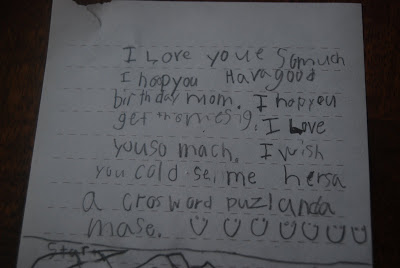 I Love youe Somuch
I hoopyou Havagood
birthday mom. I hopyou
get
I Love
youso mach. I wish
you cold sei me hersa
a crosword puzlanda
mase.
Start